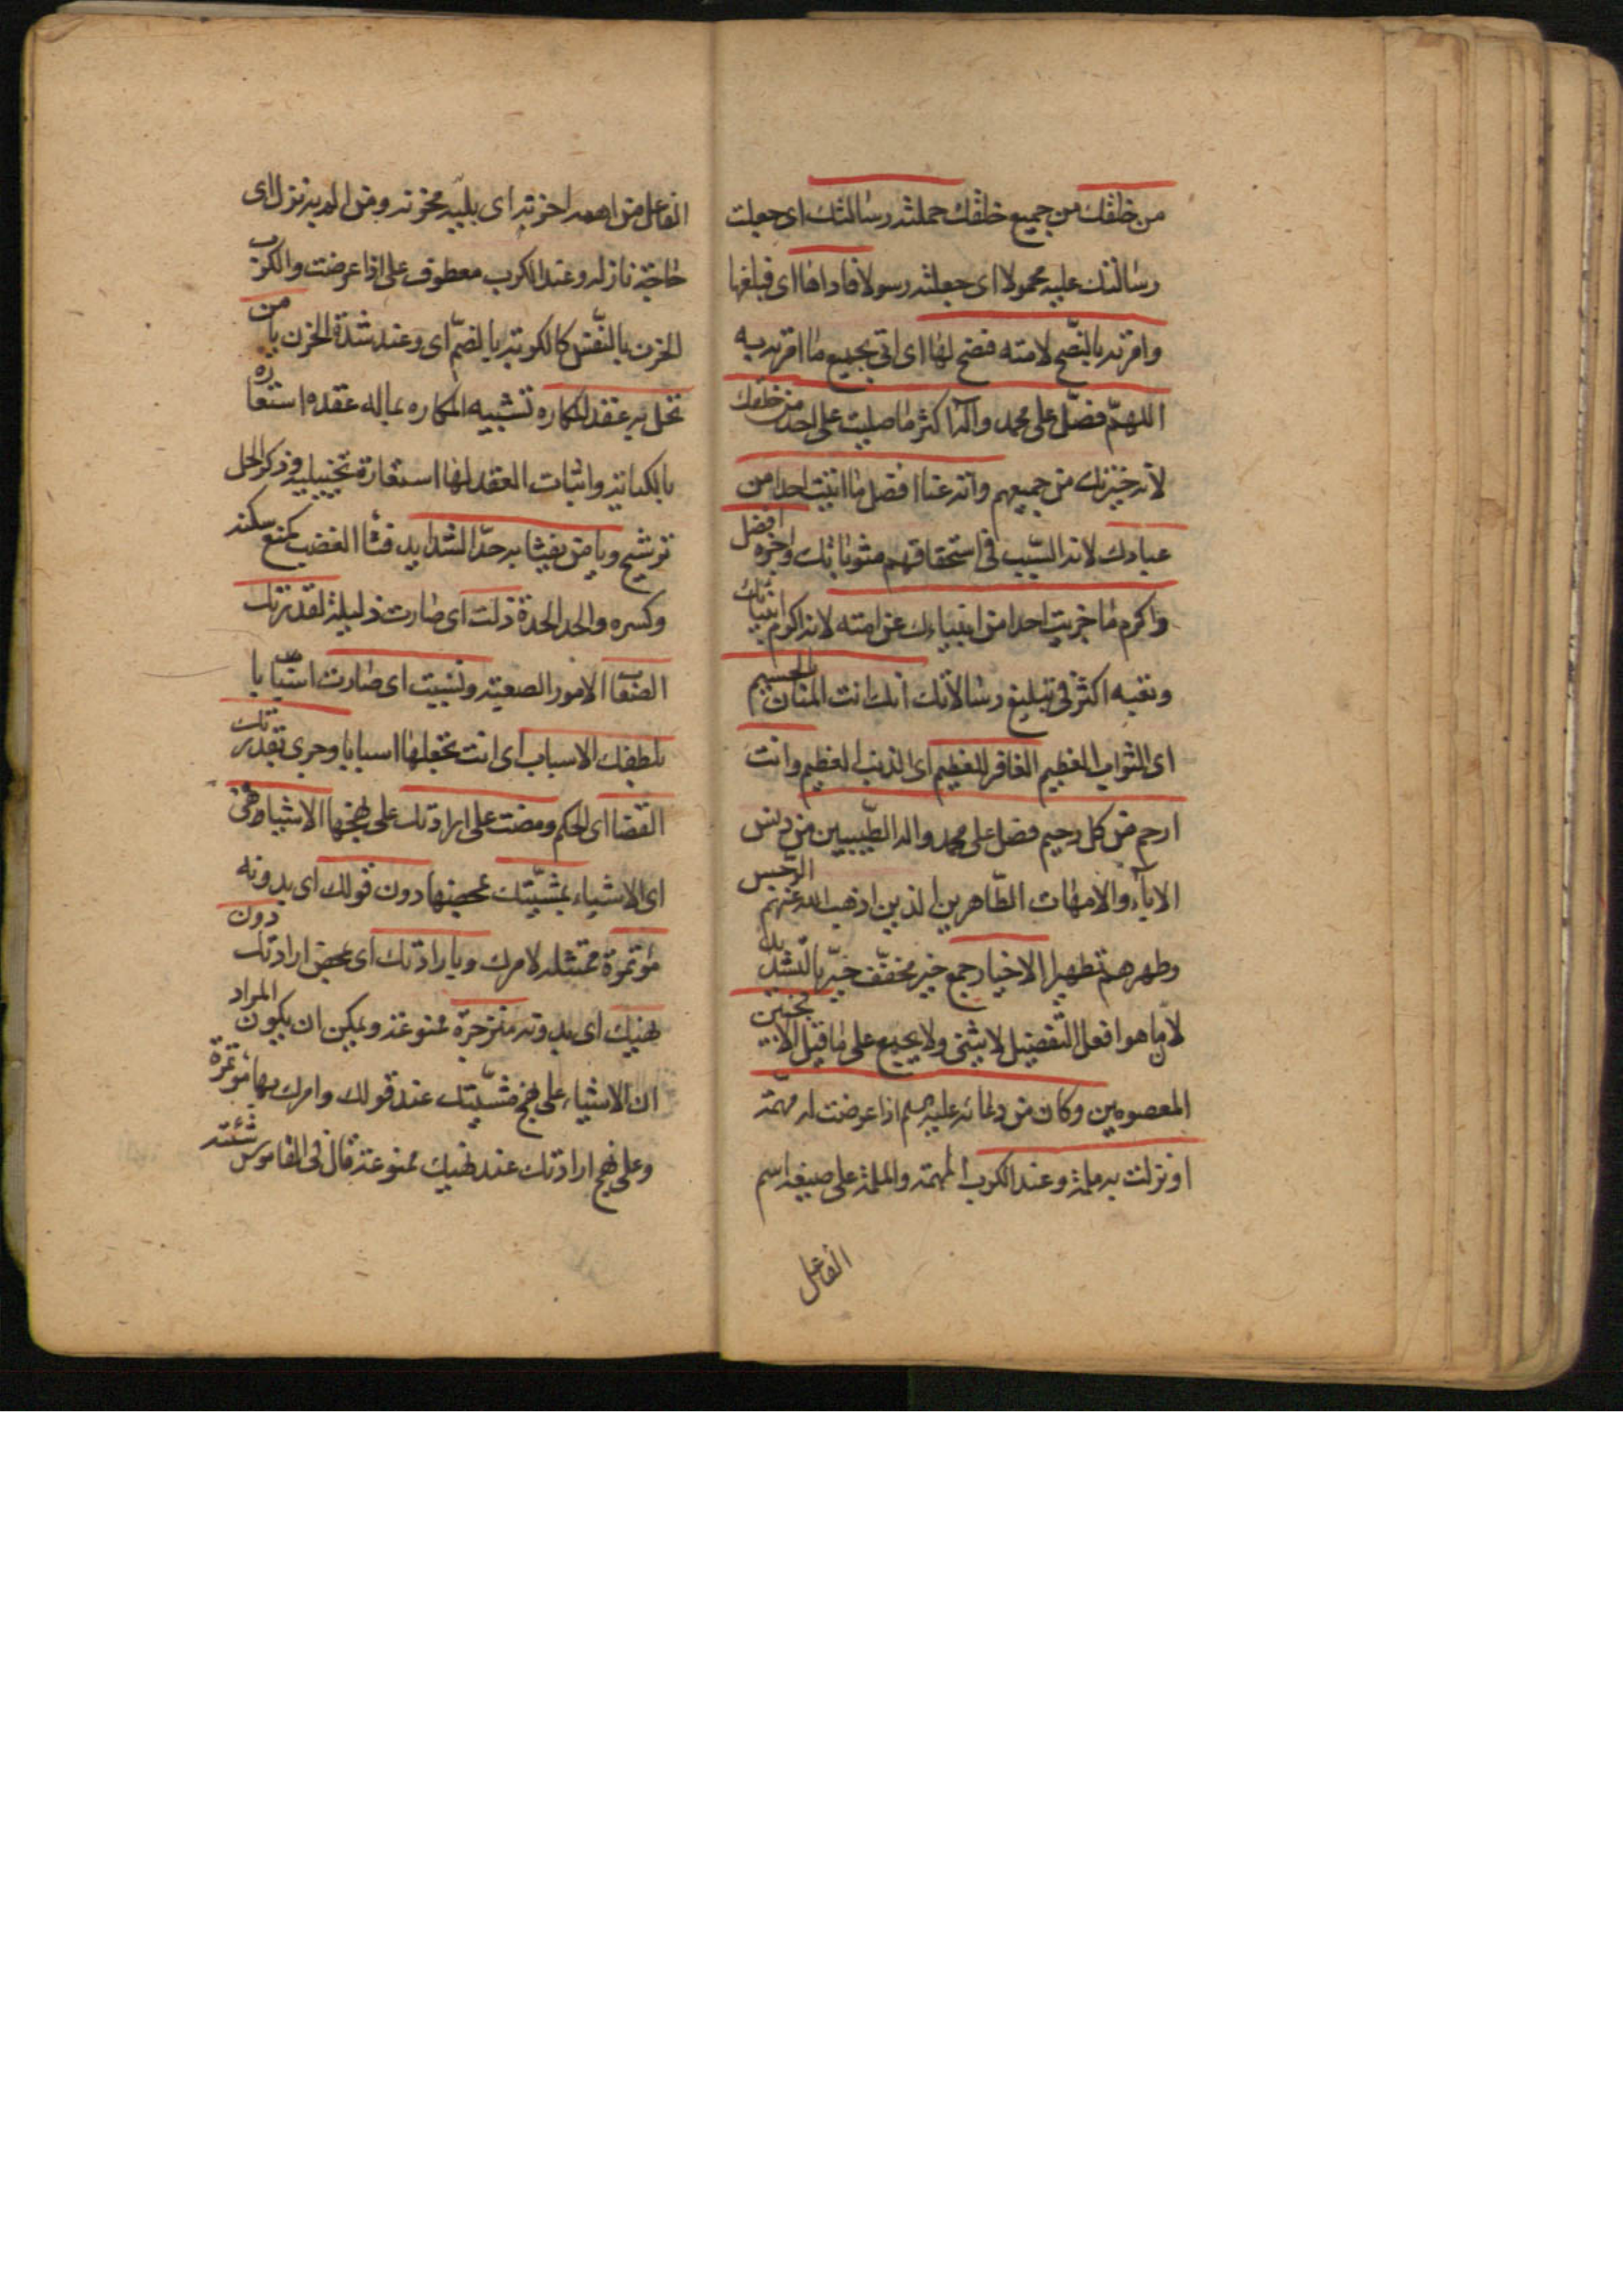 من خلقك من جميع خلقك حملته رسالتك اى جعلت
رسالتك عليه محمولا اى جعلته رسولا فاداها اى فبلغها
وامرته بالنصح لامته فنصح لها اى اتى بجميع ما امرته به
اللهم فصل على محمد وآله اكثر ما صليت على احد من خلقك
لانه خيرتك من جميعهم وآته عنا افضل ما اتيت احدا من
عبادك لانه السبب فى استحقاقهم مثوباتك واجزه افضل
واكرم ما جزيت احدا من انبياءك عن امته لانه اكرم انبيائك
وتعبه اكثر فى تبليغ رسالاتك انك انت المنان بالجسيم
اى الثواب العظيم الغافر للعظيم اى الذنب العظيم وانت
ارحم من كل رحيم فصل على محمد واله الطيبين من دنس
الاباء والامهات الطاهرين الذين اذهب الله عنهم الرجس
وطهرهم تطهيرا الاخيار جمع خير مخفف خيّر بالتشديد
لان ما هو افعل التفضيل لا يثنى ولا يجمع على ما قيل الانجبين
المعصومين وكان من دعائه عليه السلم اذا عرضت له مهمة
او نزلت به ملمة وعند الكرب المهمة والملمة على صيغة اسم
الفاعل
الفاعل من اهمه احزنه اى بليه محزنه ومن الم به نزل اى
حاجة نازله وعند الكرب معطوف على اذا عرضت والكرب
الحزن بالنفس كالكربة بالضم اى وعند شدة الحزن يا من
تحل به عقد المكاره تشبيه المكاره بماله عقده استعاره
بالكناية واثبات العقد لها استعارة تخييلية وذكر الحل
ترشيح ويا من يفثا به حد الشدايد فثا الغضب كمنع سكنه
وكسره والحد الحدة ذلت اى صارت ذليلة لقدرتك
الصعاب الامور الصعبة وتسببت اى صارت اسبابا
بلطفك الاسباب اى انت تجعلها اسبابا وجرى بقدرتك
القضا اى الحكم ومضت على ارادتك على نهجها الاشيا وهى
اى الاشياء بمشيتك بمحضها دون قولك اى بدونه
مؤتمرة ممتثله لامرك وبارادتك اى بمحض ارادتك دون
نهيك اى بدونه منزجرة ممنوعة ويمكن ان يكون المراد
ان الاشياء على نهج مشيتك عند قولك وامرك بها مؤتمرة
وعلى نهج ارادتك عند نهيك ممنوعة قال فى القاموس شئته